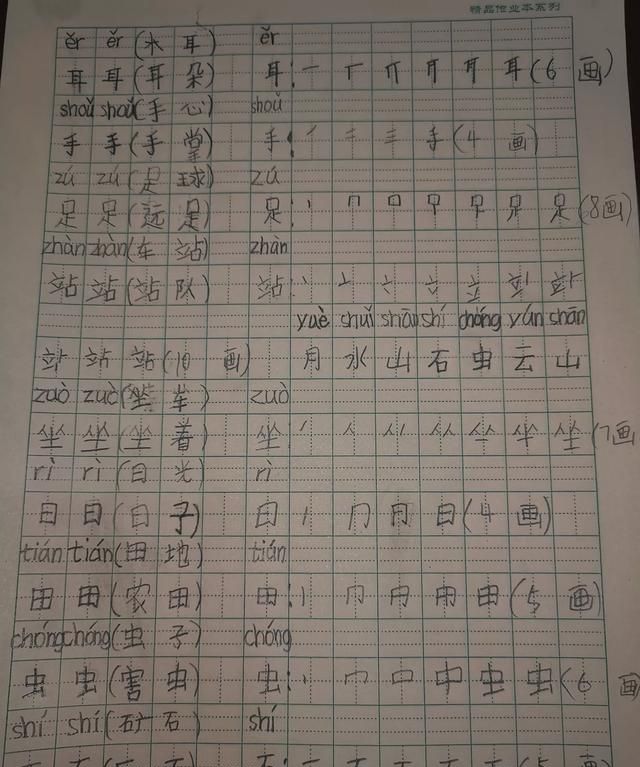 精品作业本系列
ěr ěr (木 耳) ěr
耳 耳 (耳 朵) 耳: 一 丅 耳 (6 画)
shǒu shǒu (手 心) shǒu
手 手 (手 掌) 手: 手 (4 画)
zú zú (足 球) zú
足 足 (远 足) 足: 丨 口 口 足 足 (8画)
zhàn zhàn (车 站) zhàn
站 站 (站 队) 站: 丶 亠 立 站
yuè shuǐ shān shí chóng yún shān
站 站 站 (10 画) 月 水 山 石 虫 云 山
zuò zuò (坐 车) zuò
坐 坐 (坐 着) 坐: 丿 人 从 坐 (7画
rì rì (日 光) rì
日 日 (日 子) 日: 丨 冂 日 (4 画)
tián tián (田 地) tián
田 田 (农 田) 田: 丨 冂 田 (5 画)
chóng chóng (虫 子) chóng
虫 虫 (害 虫) 虫: 丨 口 中 虫 虫 (6 画
shí shí (矿 石) shí